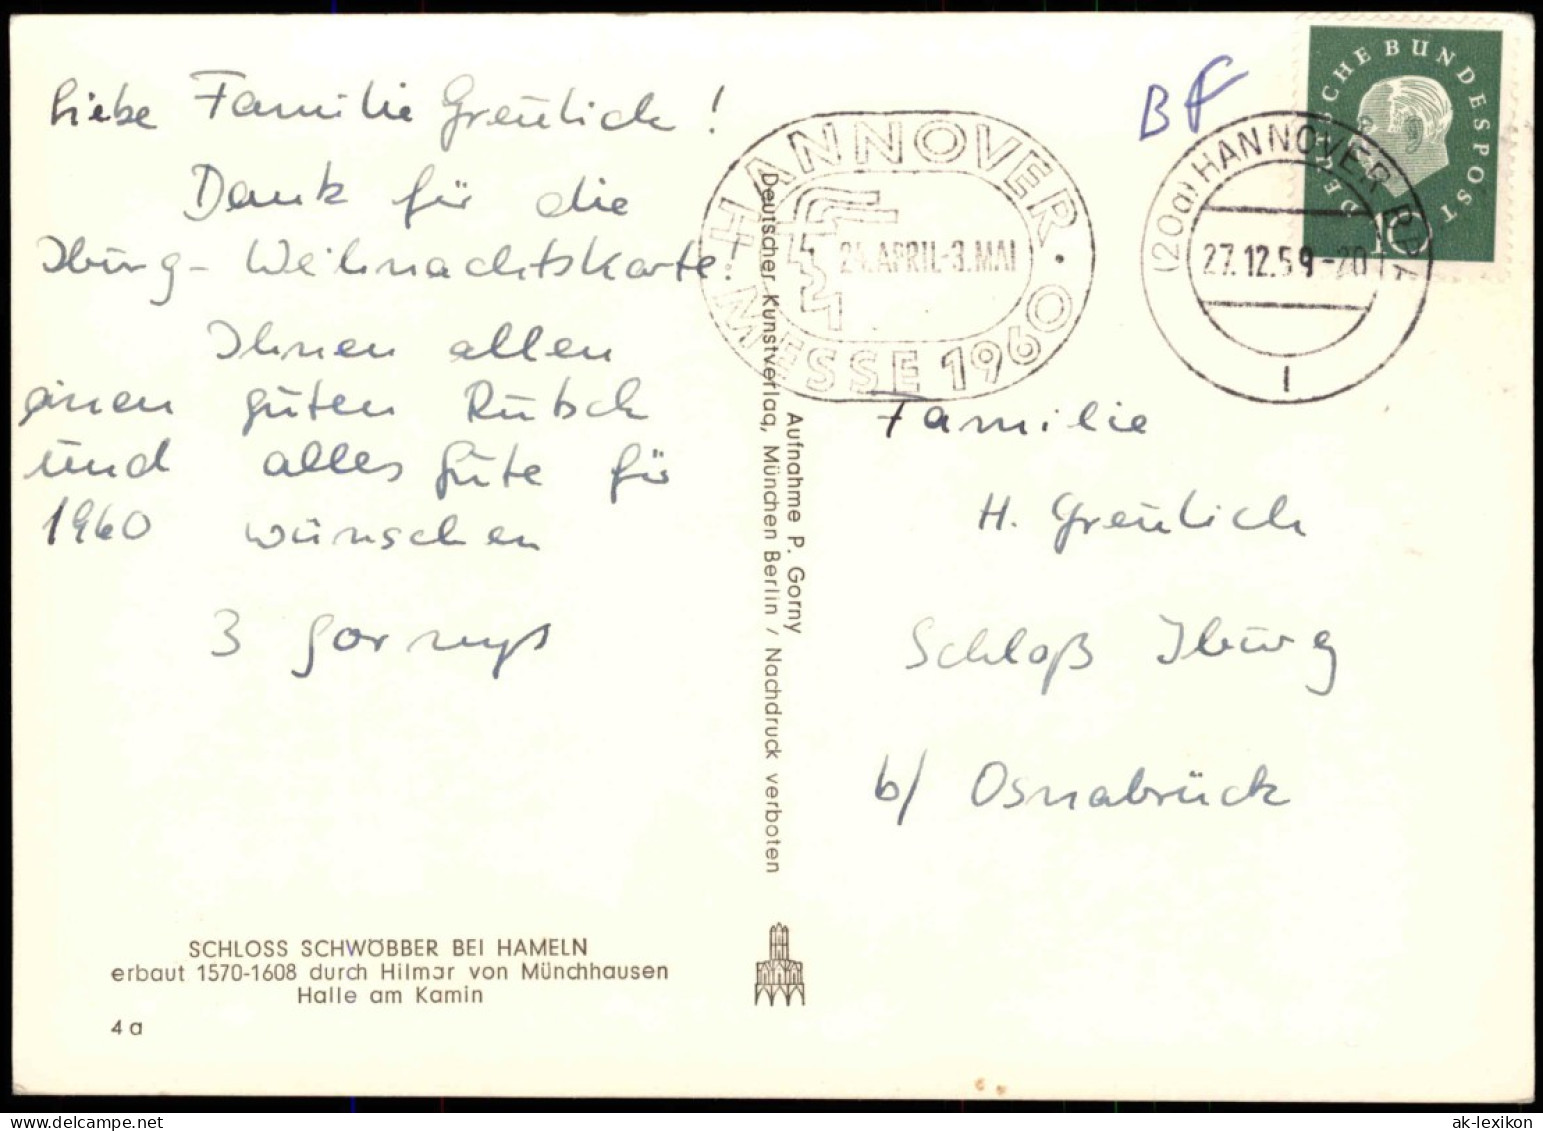 Liebe Familie Greulich!
Dank für die
Iburg-Weihnachtskarte.
Ihnen allen
einen guten Rutsch
und alles Gute für
1960 wünschen
3 Gornys
SCHLOSS SCHWÖBBER BEI HAMELN
erbaut 1570-1608 durch Hilmar von Münchhausen
Halle am Kamin
4 a
Aufnahme P. Gorny
Deutscher Kunstverlag, München Berlin / Nachdruck verboten
HANNOVER
24. APRIL-3. MAI
MESSE 1960
BF
(20a) HANNOVER BPA
27.12.59-20
DEUTSCHE BUNDESPOST
10
Familie
H. Greulich
Schloß Iburg
b/ Osnabrück
ak-lexikon